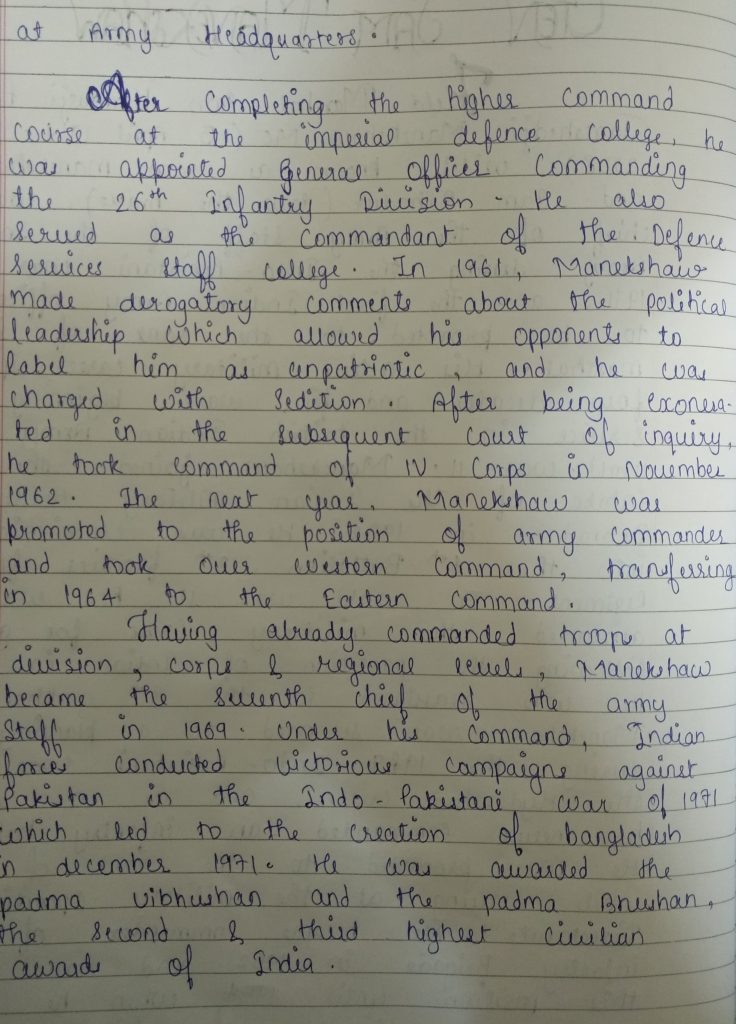 at Army Headquarters.
After completing the higher command
course at the imperial defence college, he
was appointed general officer Commanding
the 26th Infantry Division. He also
served as the commandant of the Defence
services staff college. In 1961, Manekshaw
made derogatory comments about the political
leadership which allowed his opponents to
label him as unpatriotic, and he was
charged with sedition. After being exonera-
ted in the subsequent court of inquiry,
he took command of IV Corps in November
1962. The next year, Manekshaw was
promoted to the position of army commander
and took over western command, transferring
in 1964 to the Eastern command.
Having already commanded troops at
division, corps & regional levels, Manekshaw
became the seventh chief of the army
staff in 1969. Under his command, Indian
forces conducted victorious campaigns against
Pakistan in the Indo-Pakistani war of 1971
which led to the creation of bangladesh
in december 1971. He was awarded the
padma vibhushan and the padma Bhushan,
the second & third highest civilian
awards of India.